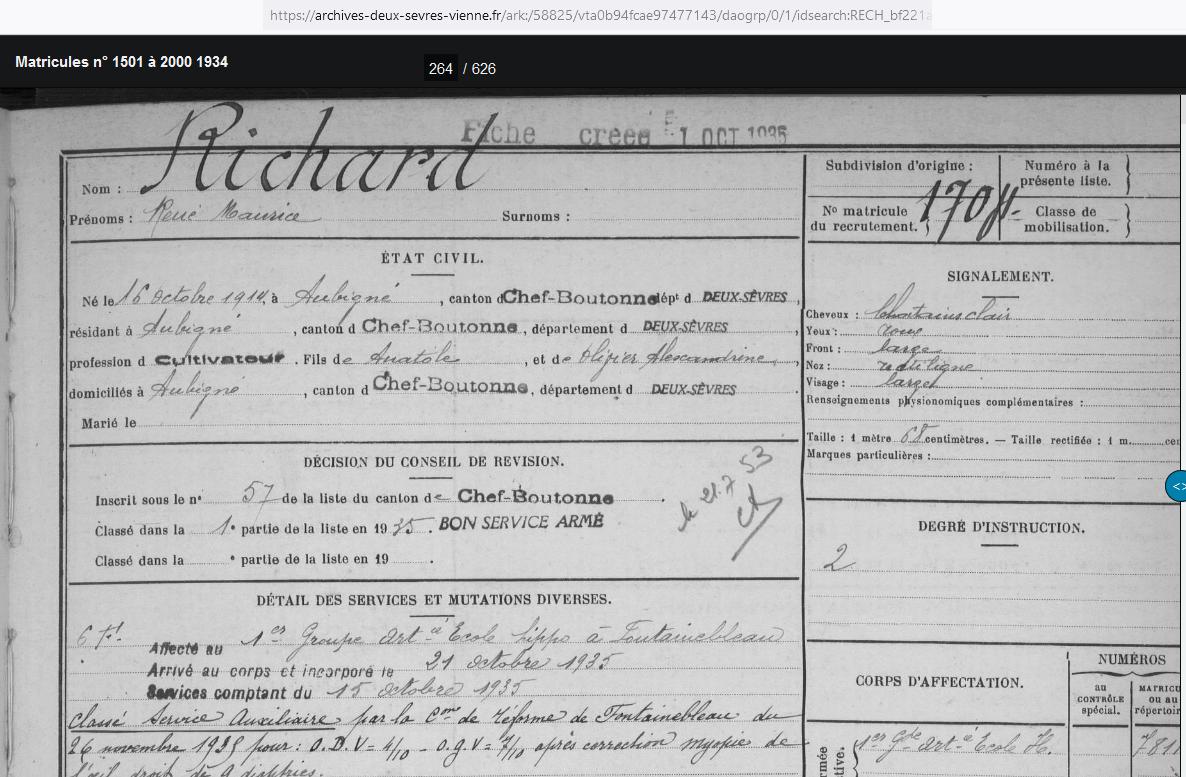 https://archives-deux-sevres-vienne.fr/ark:/58825/vta0b94fcae97477143/daogrp/0/1/idsearch:RECH_bf221
Matricules n° 1501 à 2000 1934
264 / 626
Fiche créée 1 OCT 1935
Nom : Richard
Prénoms : René Maurice Surnoms :
ÉTAT CIVIL.
Né le 16 octobre 1914, à Aubigné, canton d Chef-Boutonne dépt d DEUX-SÈVRES,
résidant à Aubigné, canton d Chef-Boutonne, département d DEUX-SÈVRES,
profession d Cultivateur. Fils de Anatole, et de Olivier Alexandrine,
domiciliés à Aubigné, canton d Chef-Boutonne, département d DEUX-SÈVRES.
Marié le
DÉCISION DU CONSEIL DE REVISION.
Inscrit sous le n° 57 de la liste du canton de Chef-Boutonne.
Classé dans la 1e partie de la liste en 1935. BON SERVICE ARMÉ
Classé dans la e partie de la liste en 19 .
le 21.7 53
DÉTAIL DES SERVICES ET MUTATIONS DIVERSES.
Affecté au 1er Groupe Art ie École hippo à Fontainebleau
Arrivé au corps et incorporé le 21 octobre 1935
Services comptant du 15 octobre 1935
Classé Service Auxiliaire par la Com de Réforme de Fontainebleau du
26 novembre 1935 pour : O.D.V = 4/10 - O.g.V = 7/10 après correction myopie de
l'œil droit de 9 dioptries.
Subdivision d'origine :
Numéro à la présente liste.
No matricule du recrutement. 1708
Classe de mobilisation.
SIGNALEMENT.
Cheveux : Chatains clair
Yeux :
Front : large
Nez : rectiligne
Visage : large
Renseignements physionomiques complémentaires :
Taille : 1 mètre 68 centimètres. — Taille rectifiée : 1 m. cen
Marques particulières :
DEGRÉ D'INSTRUCTION.
2
CORPS D'AFFECTATION.
NUMÉROS
au CONTRÔLE spécial.
MATRICU ou au répertoir
1er Gpe Art ie École H.
781
rmée
tive.
<>